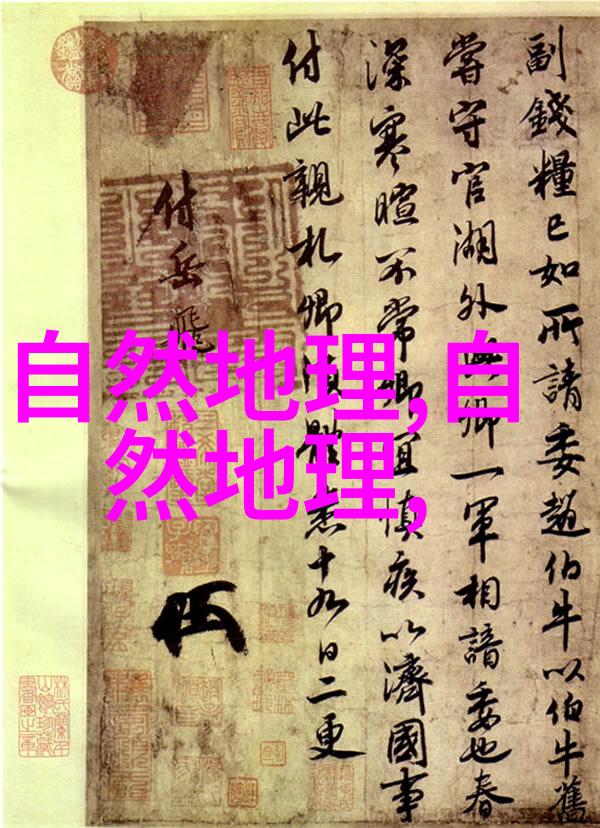 副錢糧已如所請委趙伯牛以伯牛舊
嘗守官湖外與卿一軍相諳委也春
深寒暄不常卿宜慎疾以濟國事
付此親札卿須體悉十九日二更
付岳飛
自然地理,自
然地理,